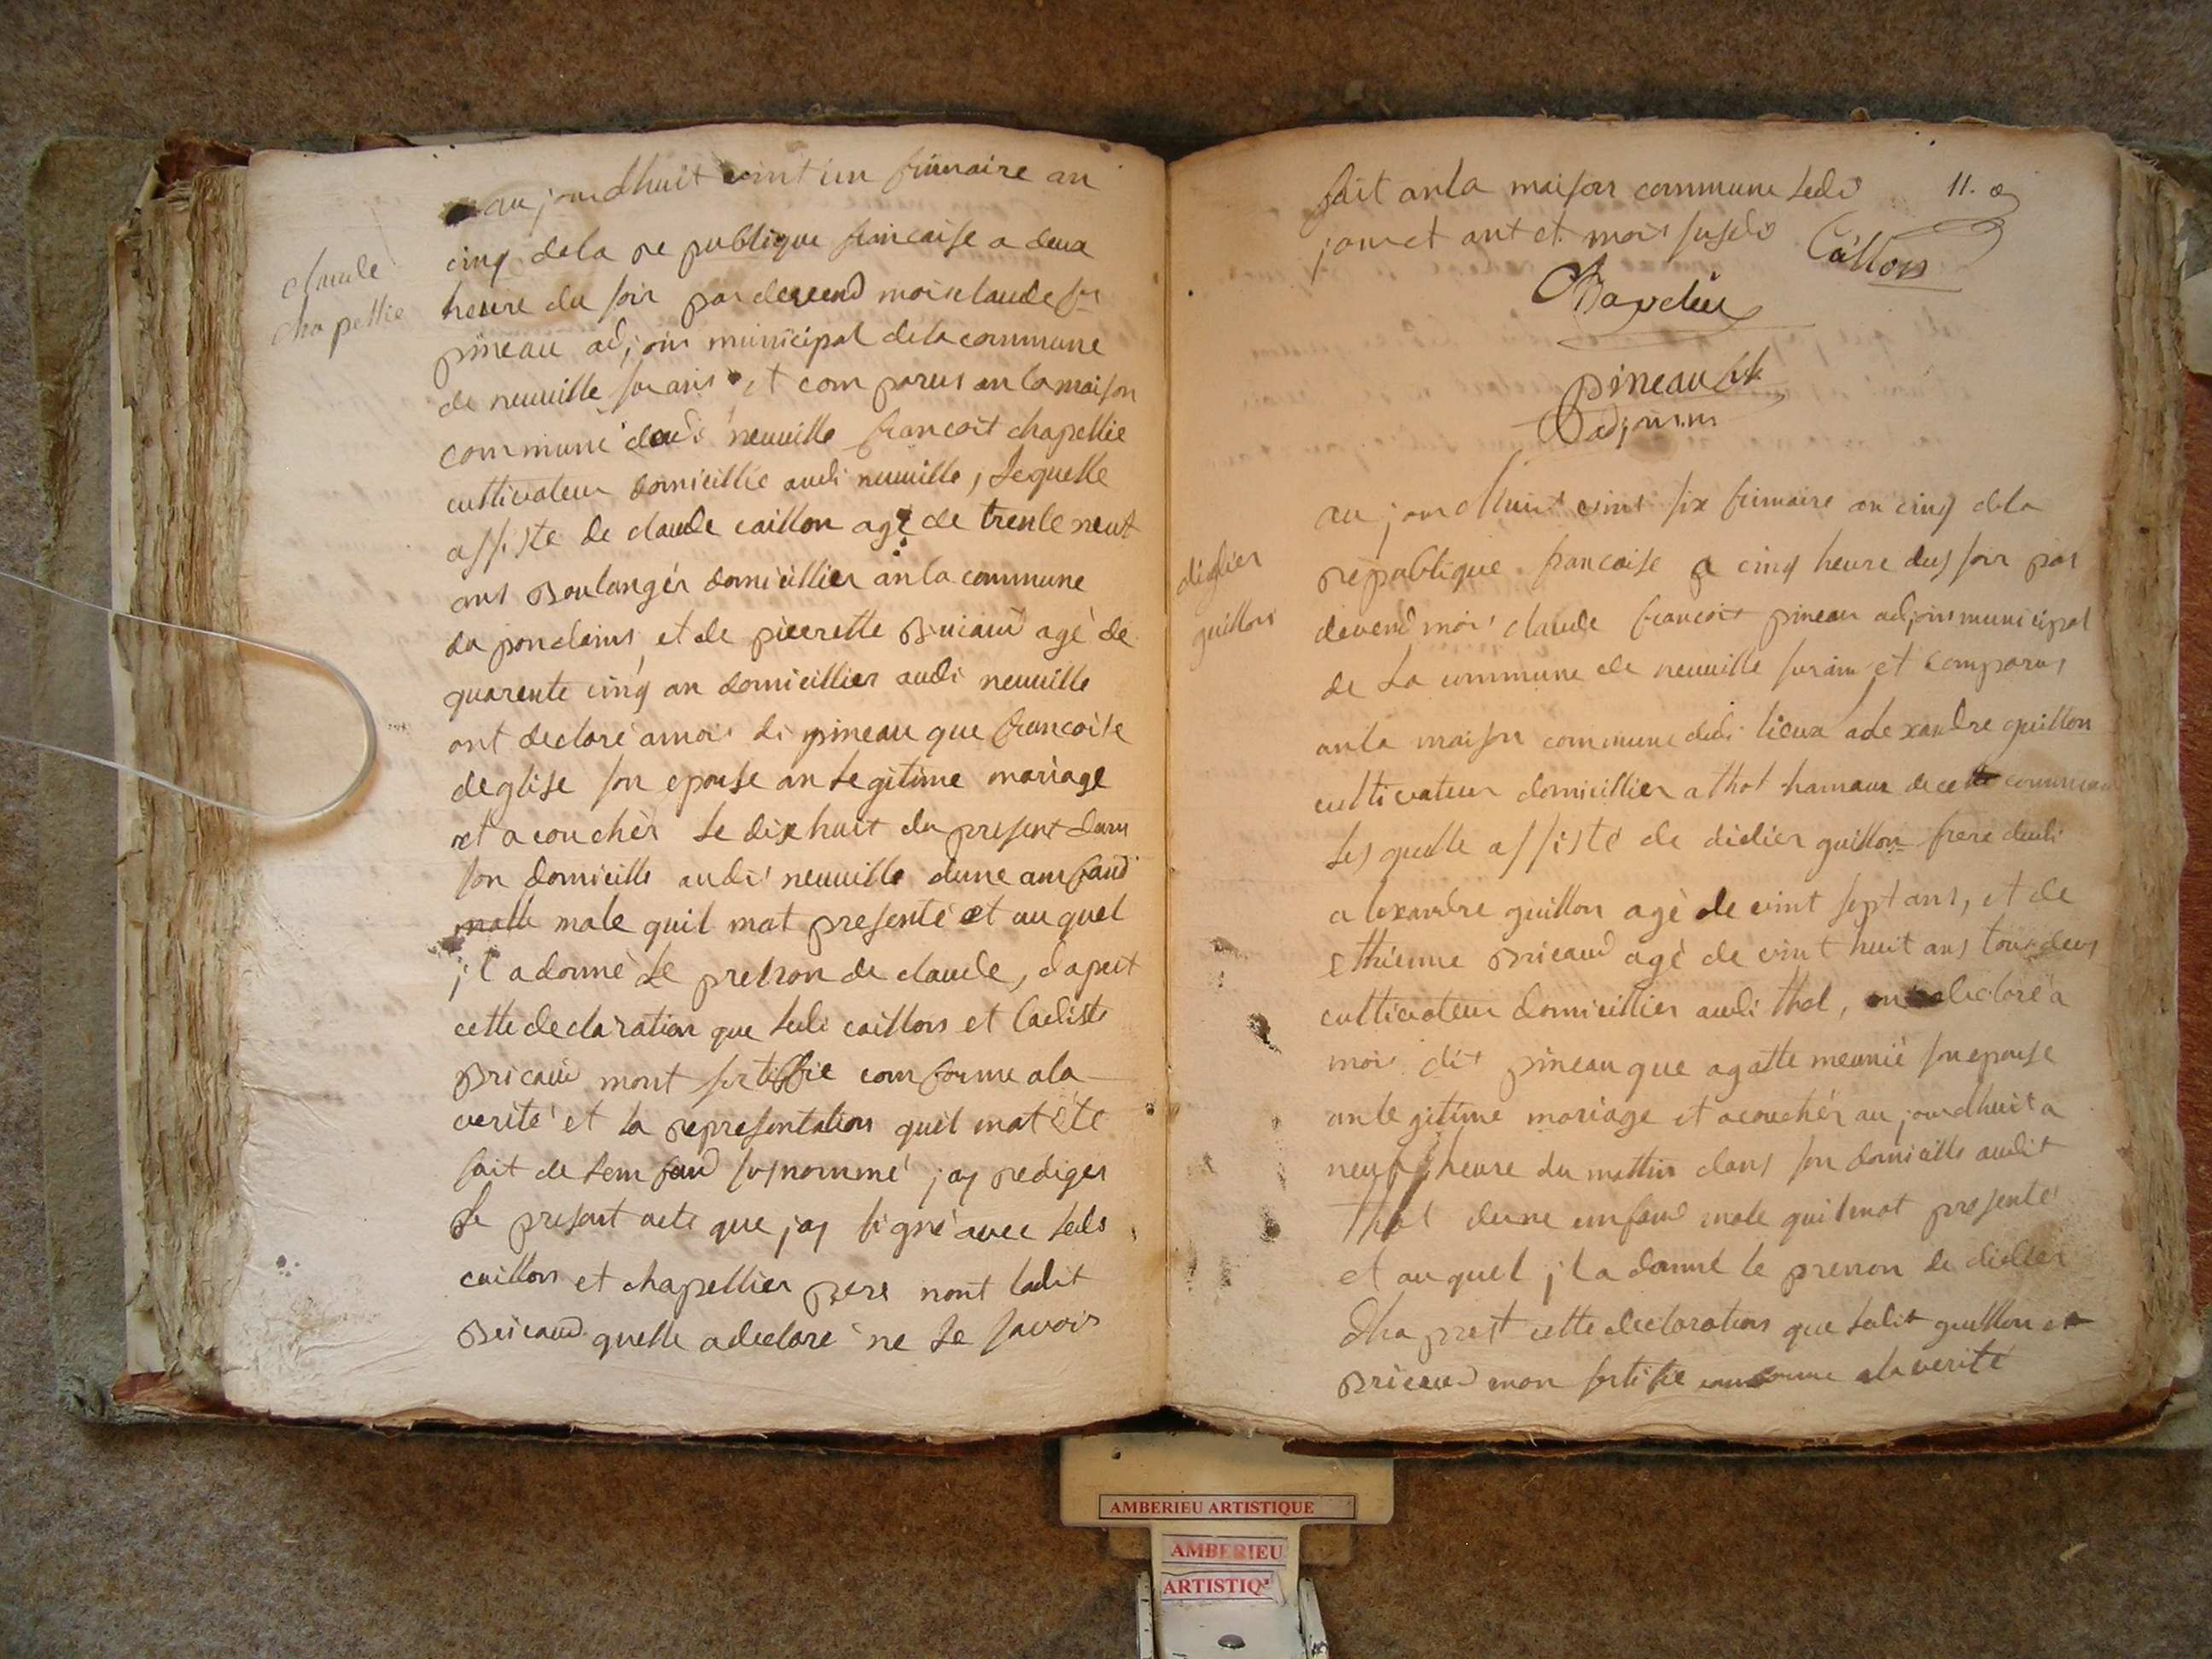 claude
chapellie
aujourdhuit vint un frimaire an
cinq dela republique francaise a deux
heure du soir par devend moi claude fr
pineau adjoin municipal dela commune
de neuville sur ains et comparus an la maison
commune dudi neuville francoit chapellie
cultivateur domicillie audi neuville, lequelle
assiste de claude caillon agé de trente neut
ans Boulangér domicillier an la commune
du pondains et de pierrette Bricaud agé de
quarente cinq an domicillier audi neuville
ont declaré amoi di pineau que francoise
deglise son epouse an legitime mariage
et acouchér le dix huit du present dans
son domicille audi neuville dune amfand
malle male quil mat presenté et au quel
il a donné le prenon de claude, dapret
cette declaration que ledi caillons et ladiste
Bricaud mont sertiffie comforme ala
verité et la representation quil mat été
fait de lemfand susnommé jay rediger
le presant acte que jay signé avec leds
caillons et chapellier pere nont ladit
Bricaud quelle adeclare ne le savoir
fait anla maison commune ledi
jour et ant et mois susdi
11.
Caillon
Chapelier
pineau
adjoin
diglier
guillon
aujourdhuit vint six frimaire an cinq dela
republique francaise a cinq heure dus soir par
devend moi claude francoit pineau adjoin municipal
de la commune de neuville surain et comparus
anla maison commune dudi lieux alexandre guillon
cultivateur domicillier a thol hamaux de cette commune
lesquelle assisté de didier guillon frere dudi
alexandre guillon agé de vint sept ans, et de
ethienne Bricaud agé de vint huit ans tous deus
cultivateur domicillier audi thol, declaré a
moi dit pineau que agatte meunié son epouse
an legitime mariage et acouchér aujourdhuit a
neuf heure du mattin dans son domicille audit
thol dune emfand male quil mat presenté
et au quel il a donné le prenon de didier
dha prest cette declarations que ledit guillon et
Bricaud mon sertifie comforme ala verité
AMBERIEU ARTISTIQUE
AMBERIEU
ARTISTIQ